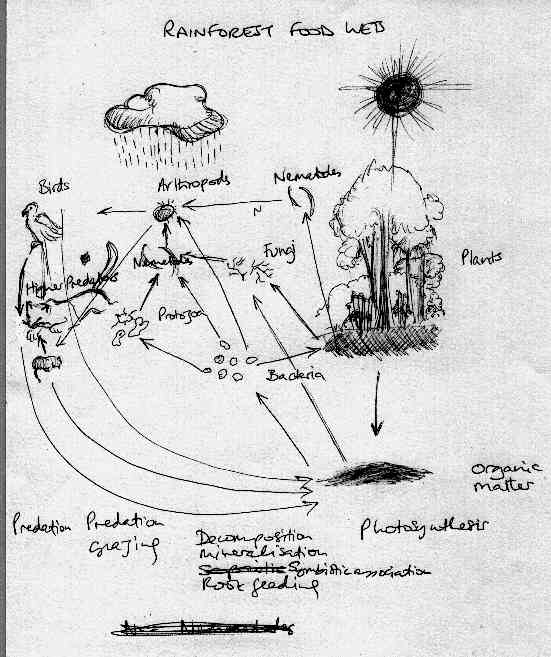 RAINFOREST FOOD WEB
Birds
Arthropods
Nematodes
N
Plants
Fungi
Nematodes
Higher Predators
Protozoa
Bacteria
Organic
matter
Predation
Predation
Grazing
Decomposition
Mineralisation
Symbiotic association
Root feeding
Photosynthesis